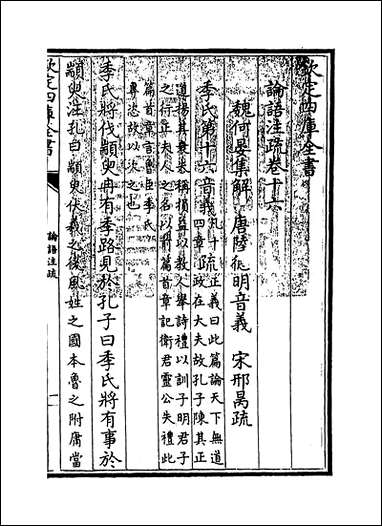 欽定四庫全書
論語注疏卷十六
魏何晏集解 唐陸德明音義 宋邢昺疏
季氏第十六 音義 凡十四章 疏 正義曰此篇論天下無道政在大夫故孔子陳其正
道揚其衰失稱損益以教人舉詩禮以訓子明君子
之行正夫人之名以前篇首章記衞君靈公失禮此
篇首章言魯臣季氏
專恣故以次之也
季氏將伐顓臾冉有季路見於孔子曰季氏將有事於
顓臾注孔曰顓臾伏羲之後風姓之國本魯之附庸當
欽定四庫全書
論語注疏
一